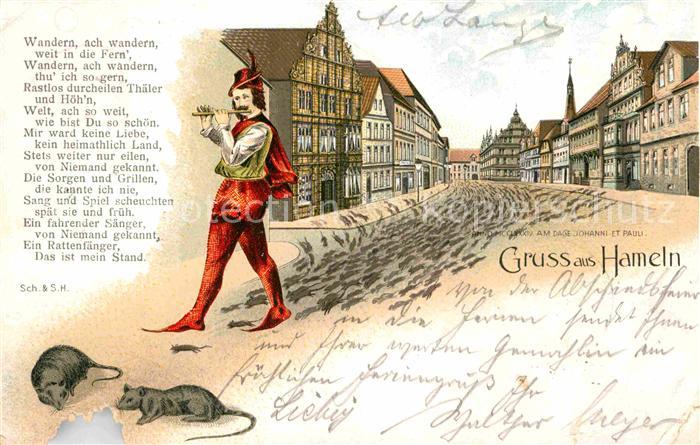 Leo Lange
Wandern, ach wandern,
weit in die Fern',
Wandern, ach wandern,
thu' ich so gern,
Rastlos durcheilen Thäler
und Höh'n,
Welt, ach so weit,
wie bist Du so schön.
Mir ward keine Liebe,
kein heimathlich Land,
Stets weiter nur eilen,
von Niemand gekannt.
Die Sorgen und Grillen,
die kannte ich nie,
Sang und Spiel scheuchten
spät sie und früh.
Ein fahrender Sänger,
von Niemand gekannt,
Ein Rattenfänger,
Das ist mein Stand.
Sch. & S. H.
ANNO MCCLXXXIV AM DAGE JOHANNI ET PAULI.
Gruss aus Hameln
von der Abschiedsfeier
in die Ferien sendet Ihnen
und Ihrer werten Gemahlin ein
fröhlichen Feriengruß Ihr
Walther Meyer